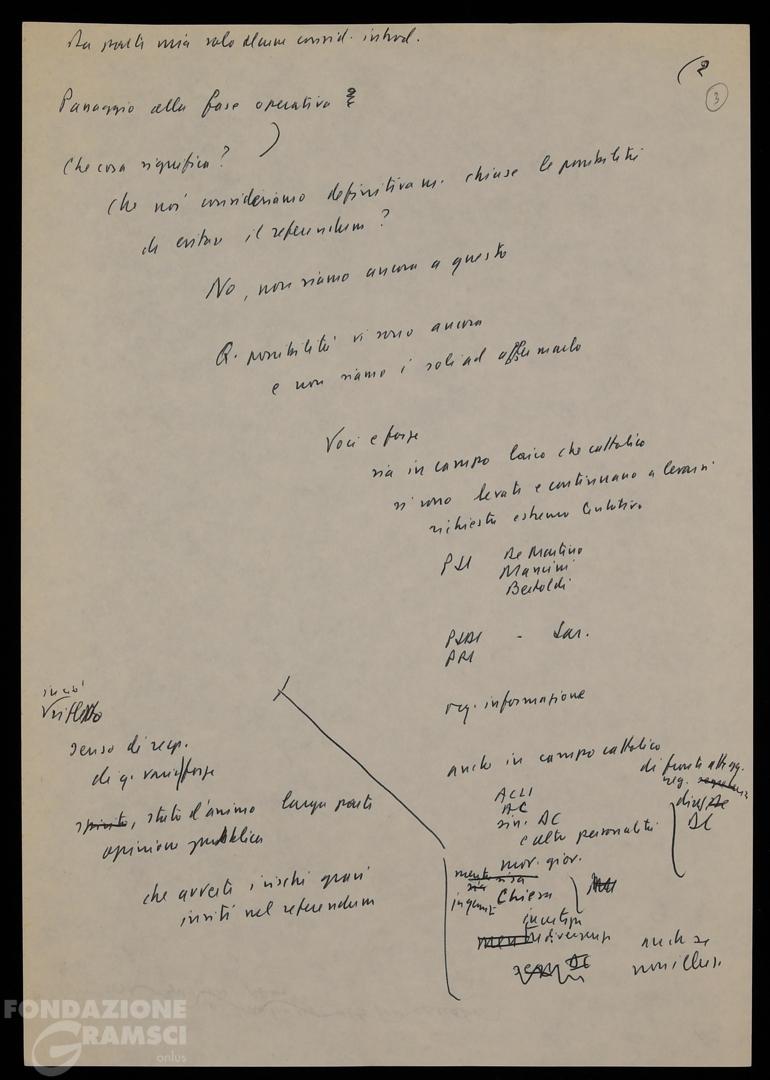 Da parte mia solo alcune consid. introd.
(2
3
Passaggio alla fase operativa
Che cosa significa?
Che noi consideriamo definitivam. chiuse le possibilità
di evitare il referendum?
No, non siamo ancora a questo
Q. possibilità vi sono ancora
e non siamo i soli ad affermarlo
Voci e forze
sia in campo laico che cattolico
si sono levate e continuano a levarsi
richiesta estremo tentativo
PSI De Martino
Mancini
Bertoldi
PSDI - Sar.
PRI
org. informazione
anche in campo cattolico
ACLI
AC
sin. DC
e altre personalità
mov. giov.
di fronte
DC
Chiesa
in quanti
incertezze
e divergenze
anche se
non illus.
in ciò
senso di resp.
di q. varie forze
spirito, stato d'animo larga parte
opinione pubblica
che avverte i rischi gravi
insiti nel referendum
FONDAZIONE
GRAMSCI
onlus